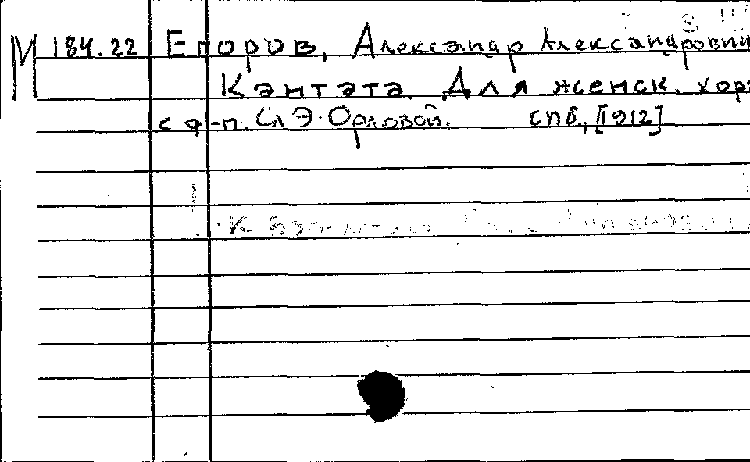 М 184.22 Егоров, Александр Александрович
Кантата. Для женск. хора
с ф-п. Сл. Э. Орловой. СПб., [1912]